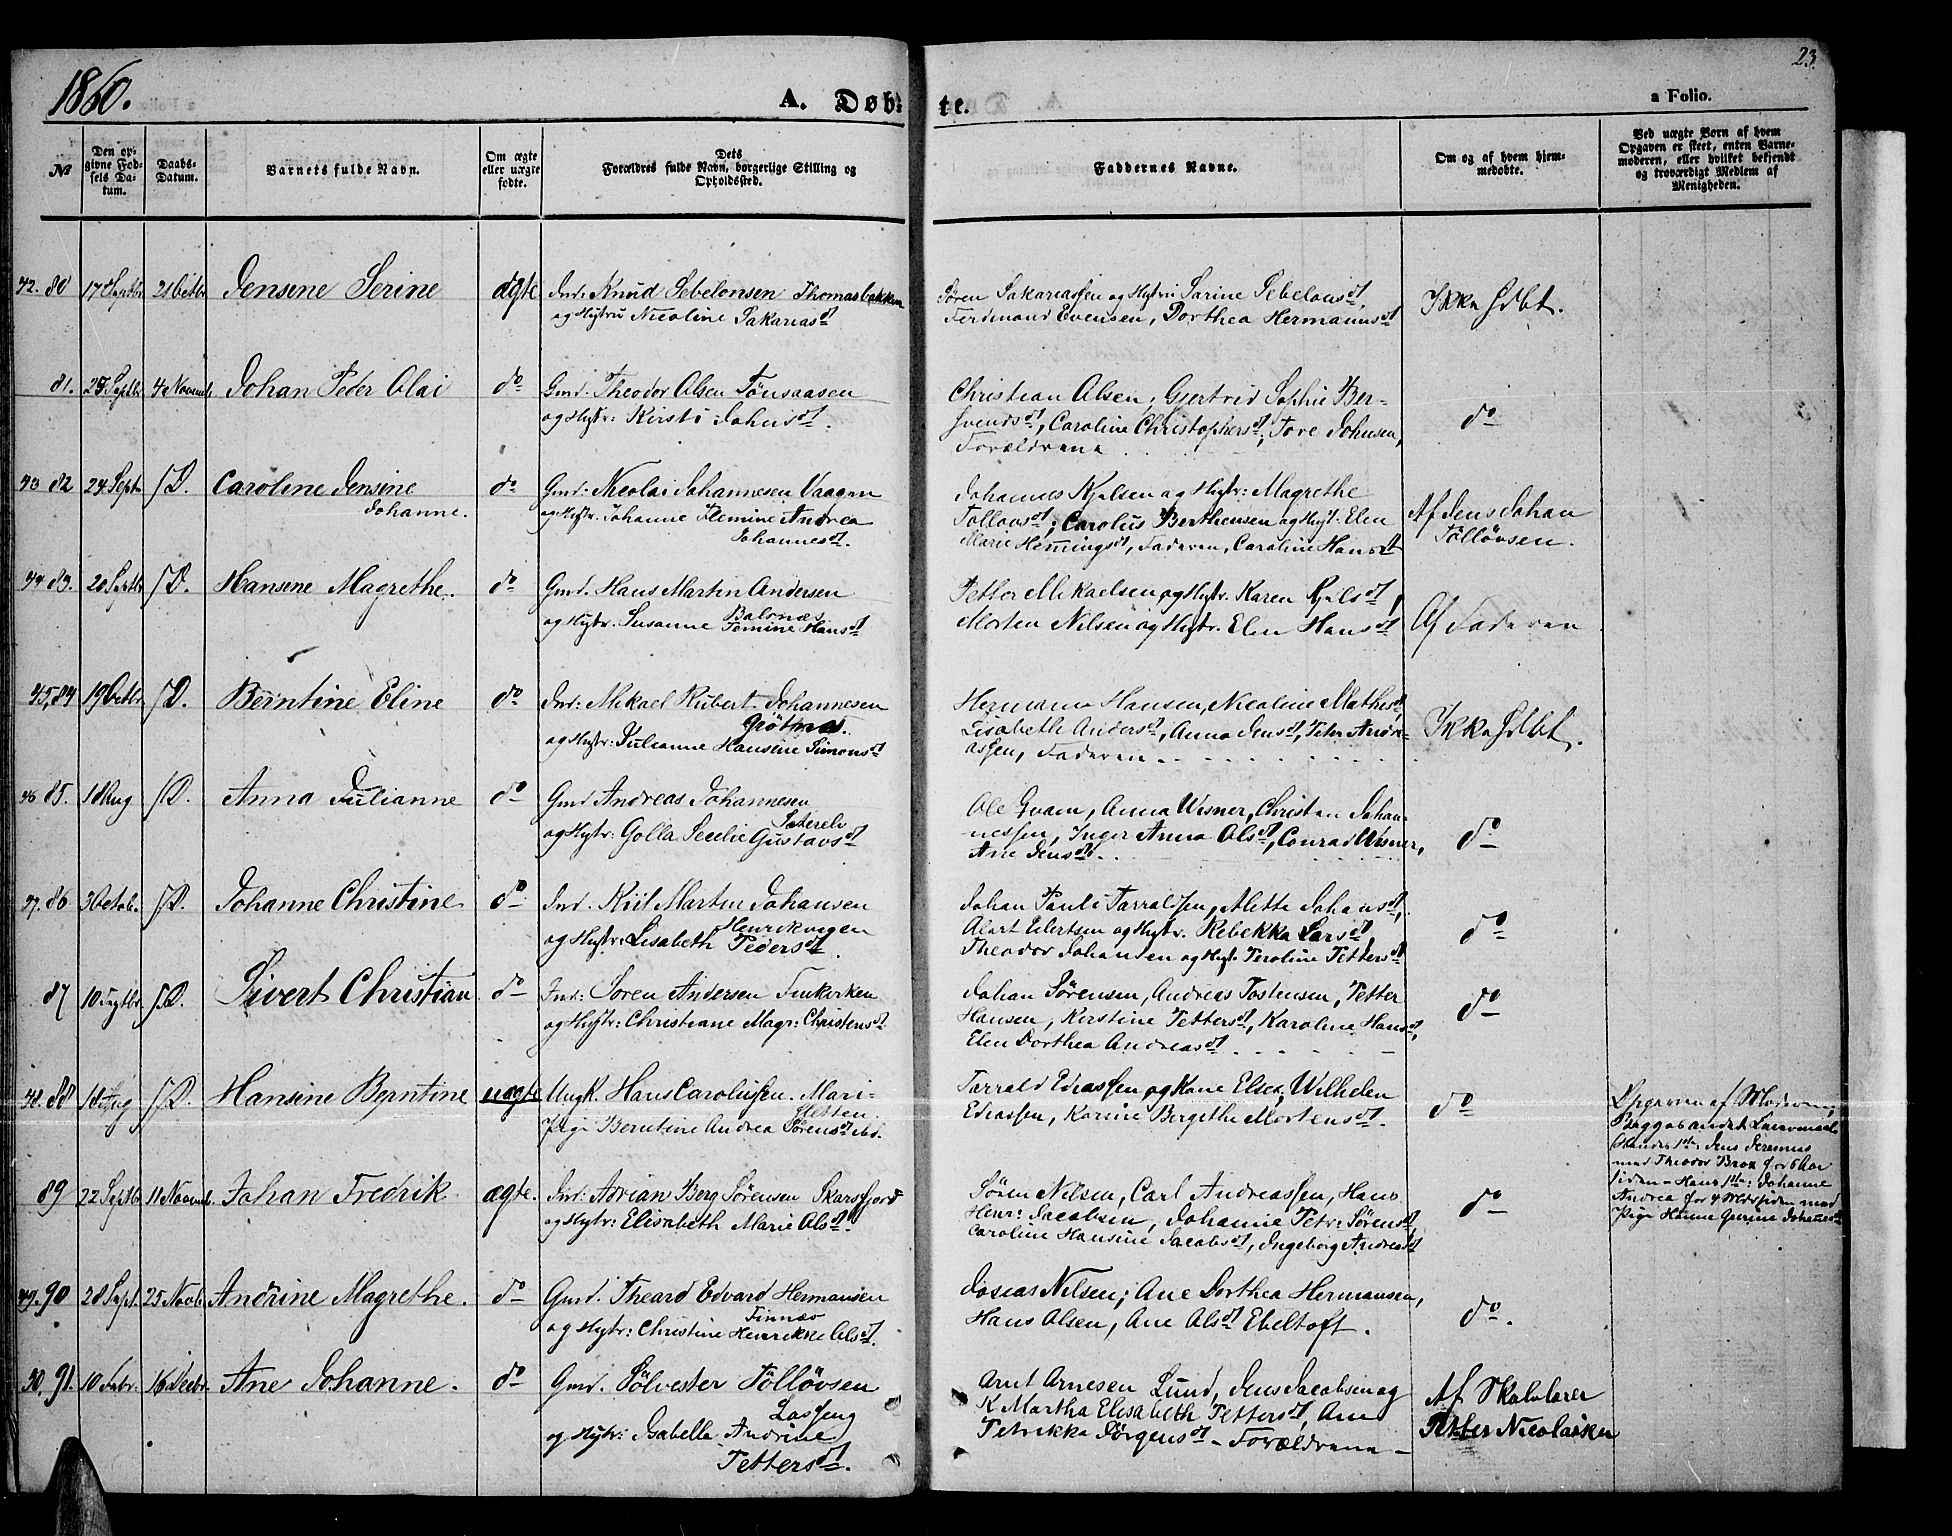 23.
1860.
A. Døb-
te.
a Folio.
№
Den op-
givne Fød-
sels Da-
tum.
Daabs-
Datum.
Barnets fulde Navn.
Om ægte
eller uægte
fødte.
Dets
Forældres fulde Navn, borgerlige Stilling og
Opholdssted.
Faddernes Navne.
Om og af hvem hjem-
medøbte.
Ved uægte Børn af hvem
Opgaven er skeet, enten Barne-
moderen, eller hvilket bekjendt
og troværdigt Medlem af
Menigheden.
42. 80 17 Septbr 21 Octbr Jensine Serine ægte Ind: Knud Sebelonsen Thomasbakken
og Hustru Nicoline Sakariasdt
Søren Sakariassen og Hustru Sarine Sebelonsdt,
Ferdinand Evensen, Dorthea Hermannsdt
Ikke Hdbt.
81. 4 Novemb. Johan Peder Olai do Gmd. Theodor Olsen Tønsaasen
og Hustr: Kirsti Johnsdt.
Christian Olsen, Gjertrud Sophie Ber-
Caroline Christophersdt, Tore Johnsen,
Forældrene
do
43 82 24 Sept. S.D. Caroline Jensine
Johanne.
do Gmd: Nicolai Johannesen Vaagen
og Hustr. Johanne Andrea
Johannesdt.
Johannes Kjelsen og Hustr: Magrethe
Carolus Berthensen og Hust. Elen
Marie Hemmingsdt, Faderen, Caroline Hansdt
Af Jens Johan
Tølløvsen.
44 83. 20 Septbr S.D. Hansene Magrethe. do Gmd. Hans Martin Andersen
Balsnæs
og Hustr. Susanne Femine Hansdt
Petter Mikaelsen og Hustr. Karen Kjelsdt,
Morten Nilsen og Hustr. Elen Hansdt
Af Faderen
45, 84 19 Octbr S.D. Berntine Eline do Ind: Mikael Hubert Johannesen
Grøtnæs.
og Hustr: Julianne Hansine Simonsdt
Hermann Hansen, Nicoline Mathisdt,
Lisabeth Andersdt, Anna Jensdt, Peter
Faderen
Ikke Hdbt.
46 85. 18 Aug S.D. Anna Julianne do Gmd Andreas Johannesen
Sæterelv
og Hustr: Golla Secelie Gustavsdt
Ole Qvam, Anna Wisner, Christen Johan-
nessen, Inger Anna Olsdt, Conrad Wisner,
Ane Jensdt.
do
47. 86 3 Octob. S.D. Johanne Christine do Ind. Kiil Martin Johansen
Henrikvigen
og Hustr: Lisabeth Pedersdt.
Johan Pauli Tarraldsen, Mette Johansdt,
Alart Elertsen og Hustr. Rebekka Larsdt
Theodor Johansen og Hust. Peroline Pettersdt
do
87 10 Septbr. S.D. Sivert Christian do Ind: Søren Andersen Finkroken
og Hustr: Christiane Magr: Christensdt.
Johan Sørensen, Andreas Tostensen, Petter
Hansen, Kirstine Pettersdt, Karoline Hansdt,
Elen Dorthea Andreasdt
do
48. 88 18 Aug S.D. Hansine Berntine uægte Ungk. Hans Carolussen. Mari-
Pige Berntine Andrea Sørensdt ibd.
Tarrald Ediassen og Kone Elsen, Wilhelm
Ediassen, Karine Bergithe Mortensdt.
do
Opgaven af Moderen,
89 22 Septbr 11 Novemb. Johan Fredrik ægte. Ind: Adrian Berg Sørensen Skarsfjord
og Hustr: Elisabeth Marie Olsdt.
Søren Nilsen, Carl Andreassen, Hans
Henr: Jacobsen, Johanne Petr: Sørensdt,
Caroline Hansine Jacobsdt, Ingeborg Andreasdt
do
Begges andet Leiermaal
Jens Jeremias
med Theodor Brox for 5 Aar
siden – Hans 1ste: Johanne
Andrea for 4 siden med
Pige Hanne Gurine Johansdt
49. 90 28 Sept. 25 Novb. Andrine Magrethe. do Gmd. Theard Edvard Hermansen
Finnæs
og Hustr: Christine Henrikke Olsdt.
Josias Nilsen; Ane Dorthea Hermansen,
Hans Olsen, Ane Olsdt Ebeltoft.
do.
50. 91. 16 Decbr. Ane Johanne. do Gmd. Sølvester Tølløvsen
Lasseng
og Hustr: Isabella Andrine
Pettersdt.
Arnt Arnesen Lund, Jens Jacobsen og
K Martha Elisabeth Pettersdt, Ane
Petrikka Jørgensdt – Forældrene –
Af Skolelærer
Petter Nicolaisen